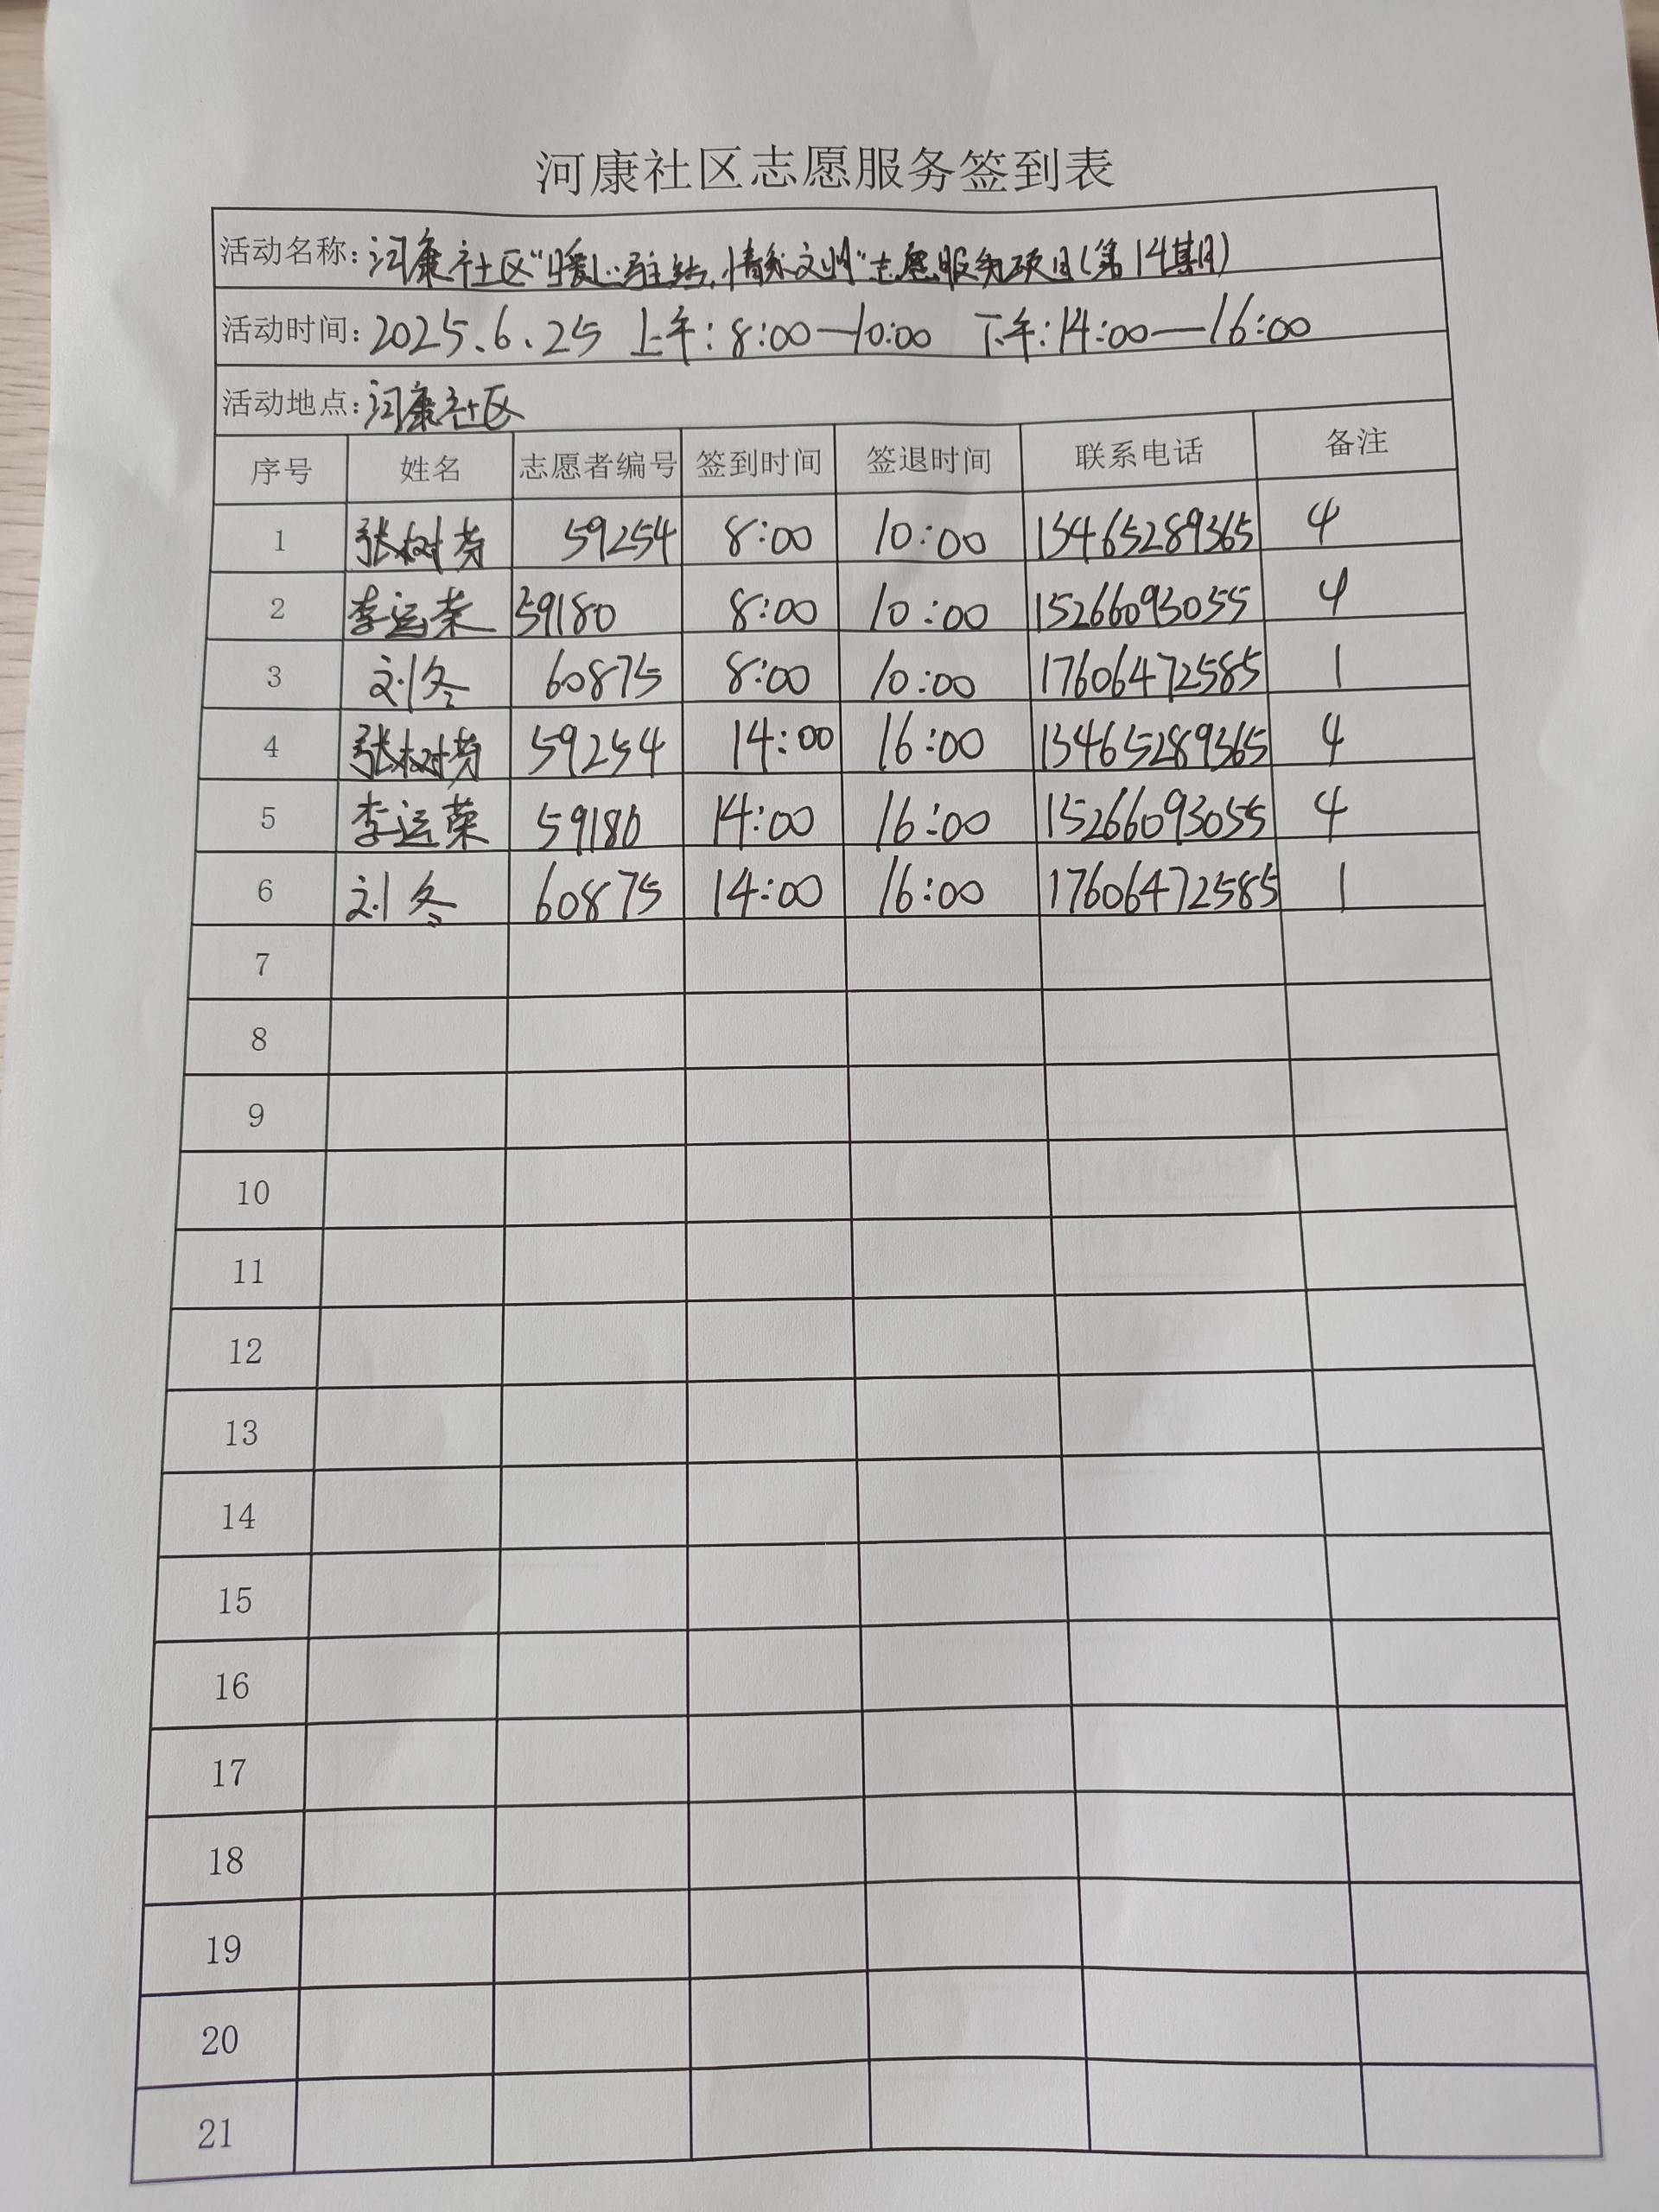 河康社区志愿服务签到表
活动名称：河康社区“暖心驻站,情系文明”志愿服务项目(第14期)
活动时间：2025.6.25 上午:8:00—10:00 下午:14:00—16:00
活动地点：河康社区
序号 姓名 志愿者编号 签到时间 签退时间 联系电话 备注
1 张树芳 59254 8:00 10:00 13465289365 4
2 李运荣 59180 8:00 10:00 15266093055 4
3 刘冬 60875 8:00 10:00 17606472585 1
4 张树芳 59254 14:00 16:00 13465289365 4
5 李运荣 59180 14:00 16:00 15266093055 4
6 刘冬 60875 14:00 16:00 17606472585 1
7
8
9
10
11
12
13
14
15
16
17
18
19
20
21